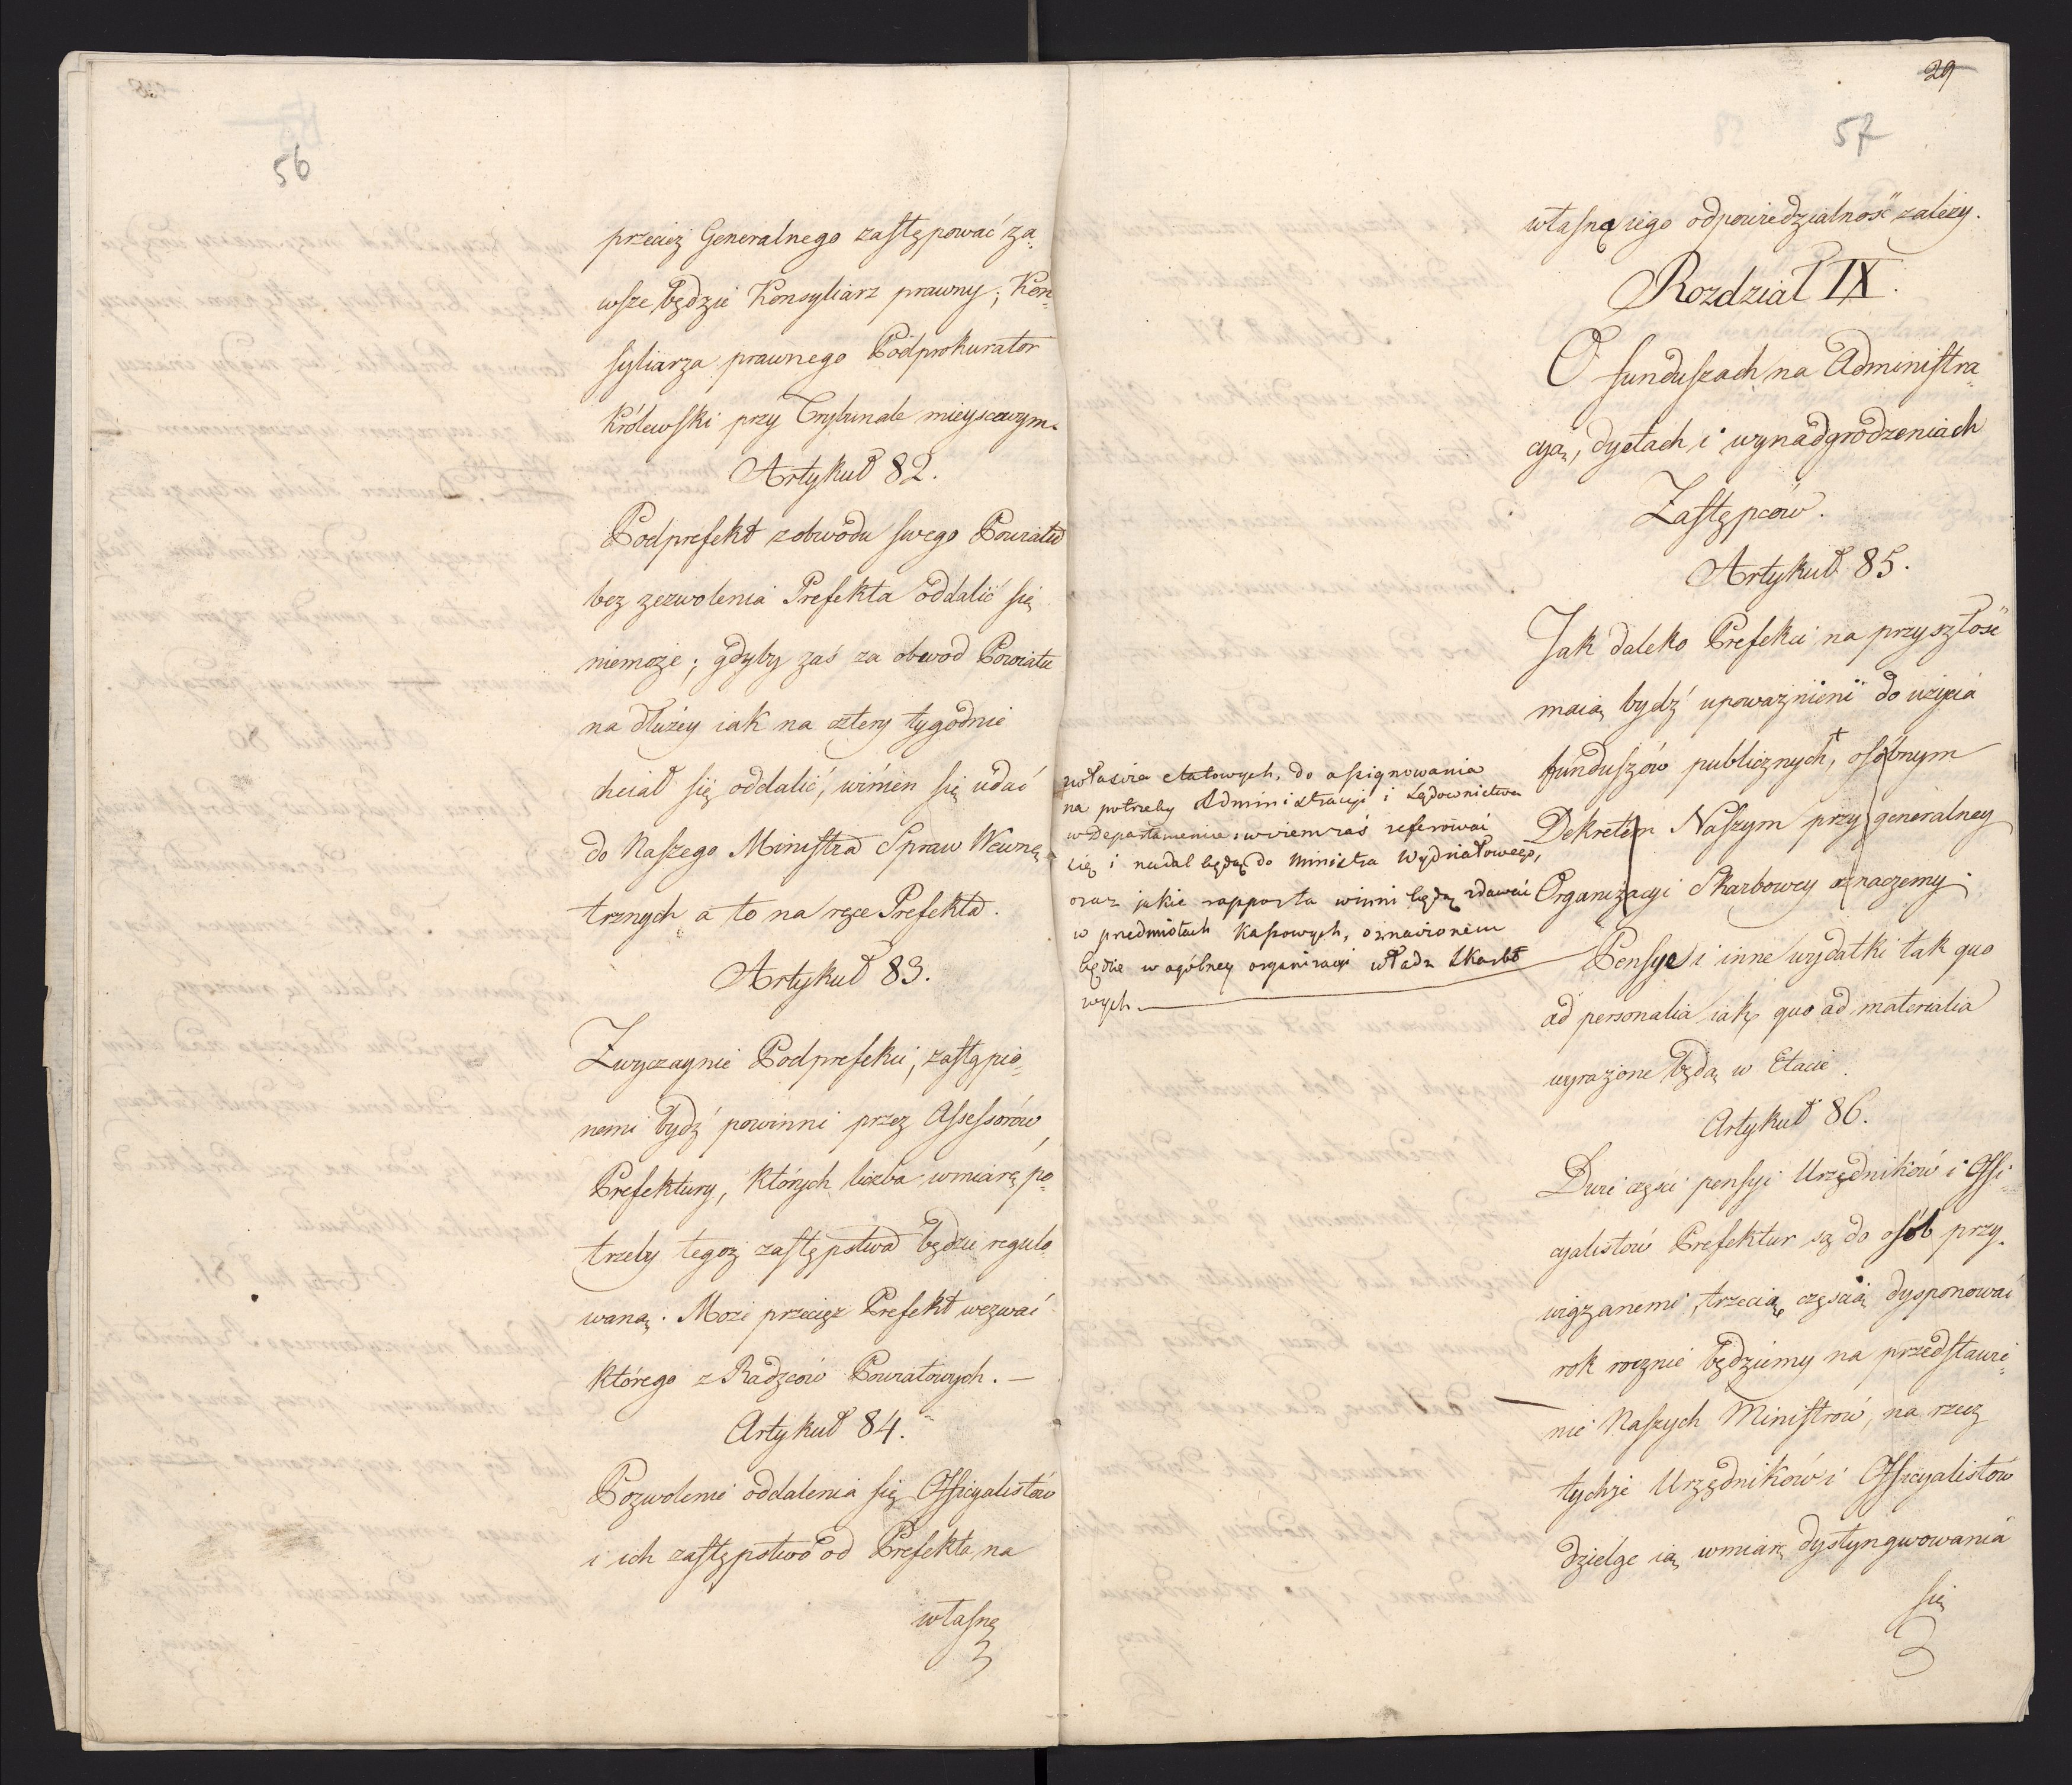 56
przecież Generalnego zastępować za„
wsze będzie Konsyliarz prawny; Kon„
syliarza prawnego Podprokurator
Królewski przy Trybunale mieyscowym.
Artykuł 82.
Podprefekt z obwodu swego Powiatu
bez zezwolenia Prefekta oddalić się
niemoże; gdyby zaś za obwod Powiatu
na dłużey iak na cztery tygodnie
chciał się oddalić, winien się udać
do Naszego Ministra Spraw Wewnę„
trznych a to na ręce Prefekta.
Artykuł 83.
Zwyczaynie Podprefekci, zastąpio„
nemi bydź powinni przez Assessorów
Prefektury, których liczba w miarę po„
trzeby tegoż zastępstwa będzie regulo„
waną. Może przecięż Prefekt wezwać
którego z Radzców Powiatowych. —
Artykuł 84.
Pozwolenie oddalenia się Officyalistów
i ich zastępstwo od Prefekta, na
własną
29
57
własną iego odpowiedzialność zależy.
Rozdział IX.
O funduszach na Administra„
cyą, dyetach i wynadgrodzeniach
Zastępców.
Artykuł 85.
Jak daleko Prefekci na przyszłość
maią bydź upoważnieni do użycia
funduszów publicznych,+ osobnym
Dekretem Naszym przy generalney
Organizacyi Skarbowey oznaczemy.
właściwie etatowych, do assignowania
na potrzeby Administracyi i Sądownictwa
w Departamencie: w czem zaś referować
się i nadal będą do Ministra Wydziałowego,
oraz jakie rapporta winni będą zdawać
w przedmiotach Kassowych, oznaczonem
będzie w ogólney organizacyi władz Skarbo
wych. —
Pensye i inne wydatki tak quo
ad personalia iak quo ad materialia
wyrażone będą w Etacie.
Artykuł 86.
Dwie części pensyi Urzędników i Offi„
cyalistów Prefektur są do osób przy„
wiązanemi, trzecią częścią dysponować
rok rocznie będziemy na przedstawie„
nie Naszych Ministrów, na rzecz
tychże Urzędników i Officyalistów
dzieląc ią w miarę dystyngwowania
się